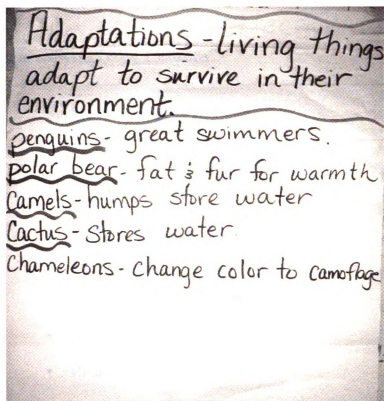 Adaptations - living things
adapt to survive in their
environment.
penguins - great swimmers.
polar bear - fat & fur for warmth
Camels - humps store water
Cactus - Stores water
Chameleons - Change color to camoflage